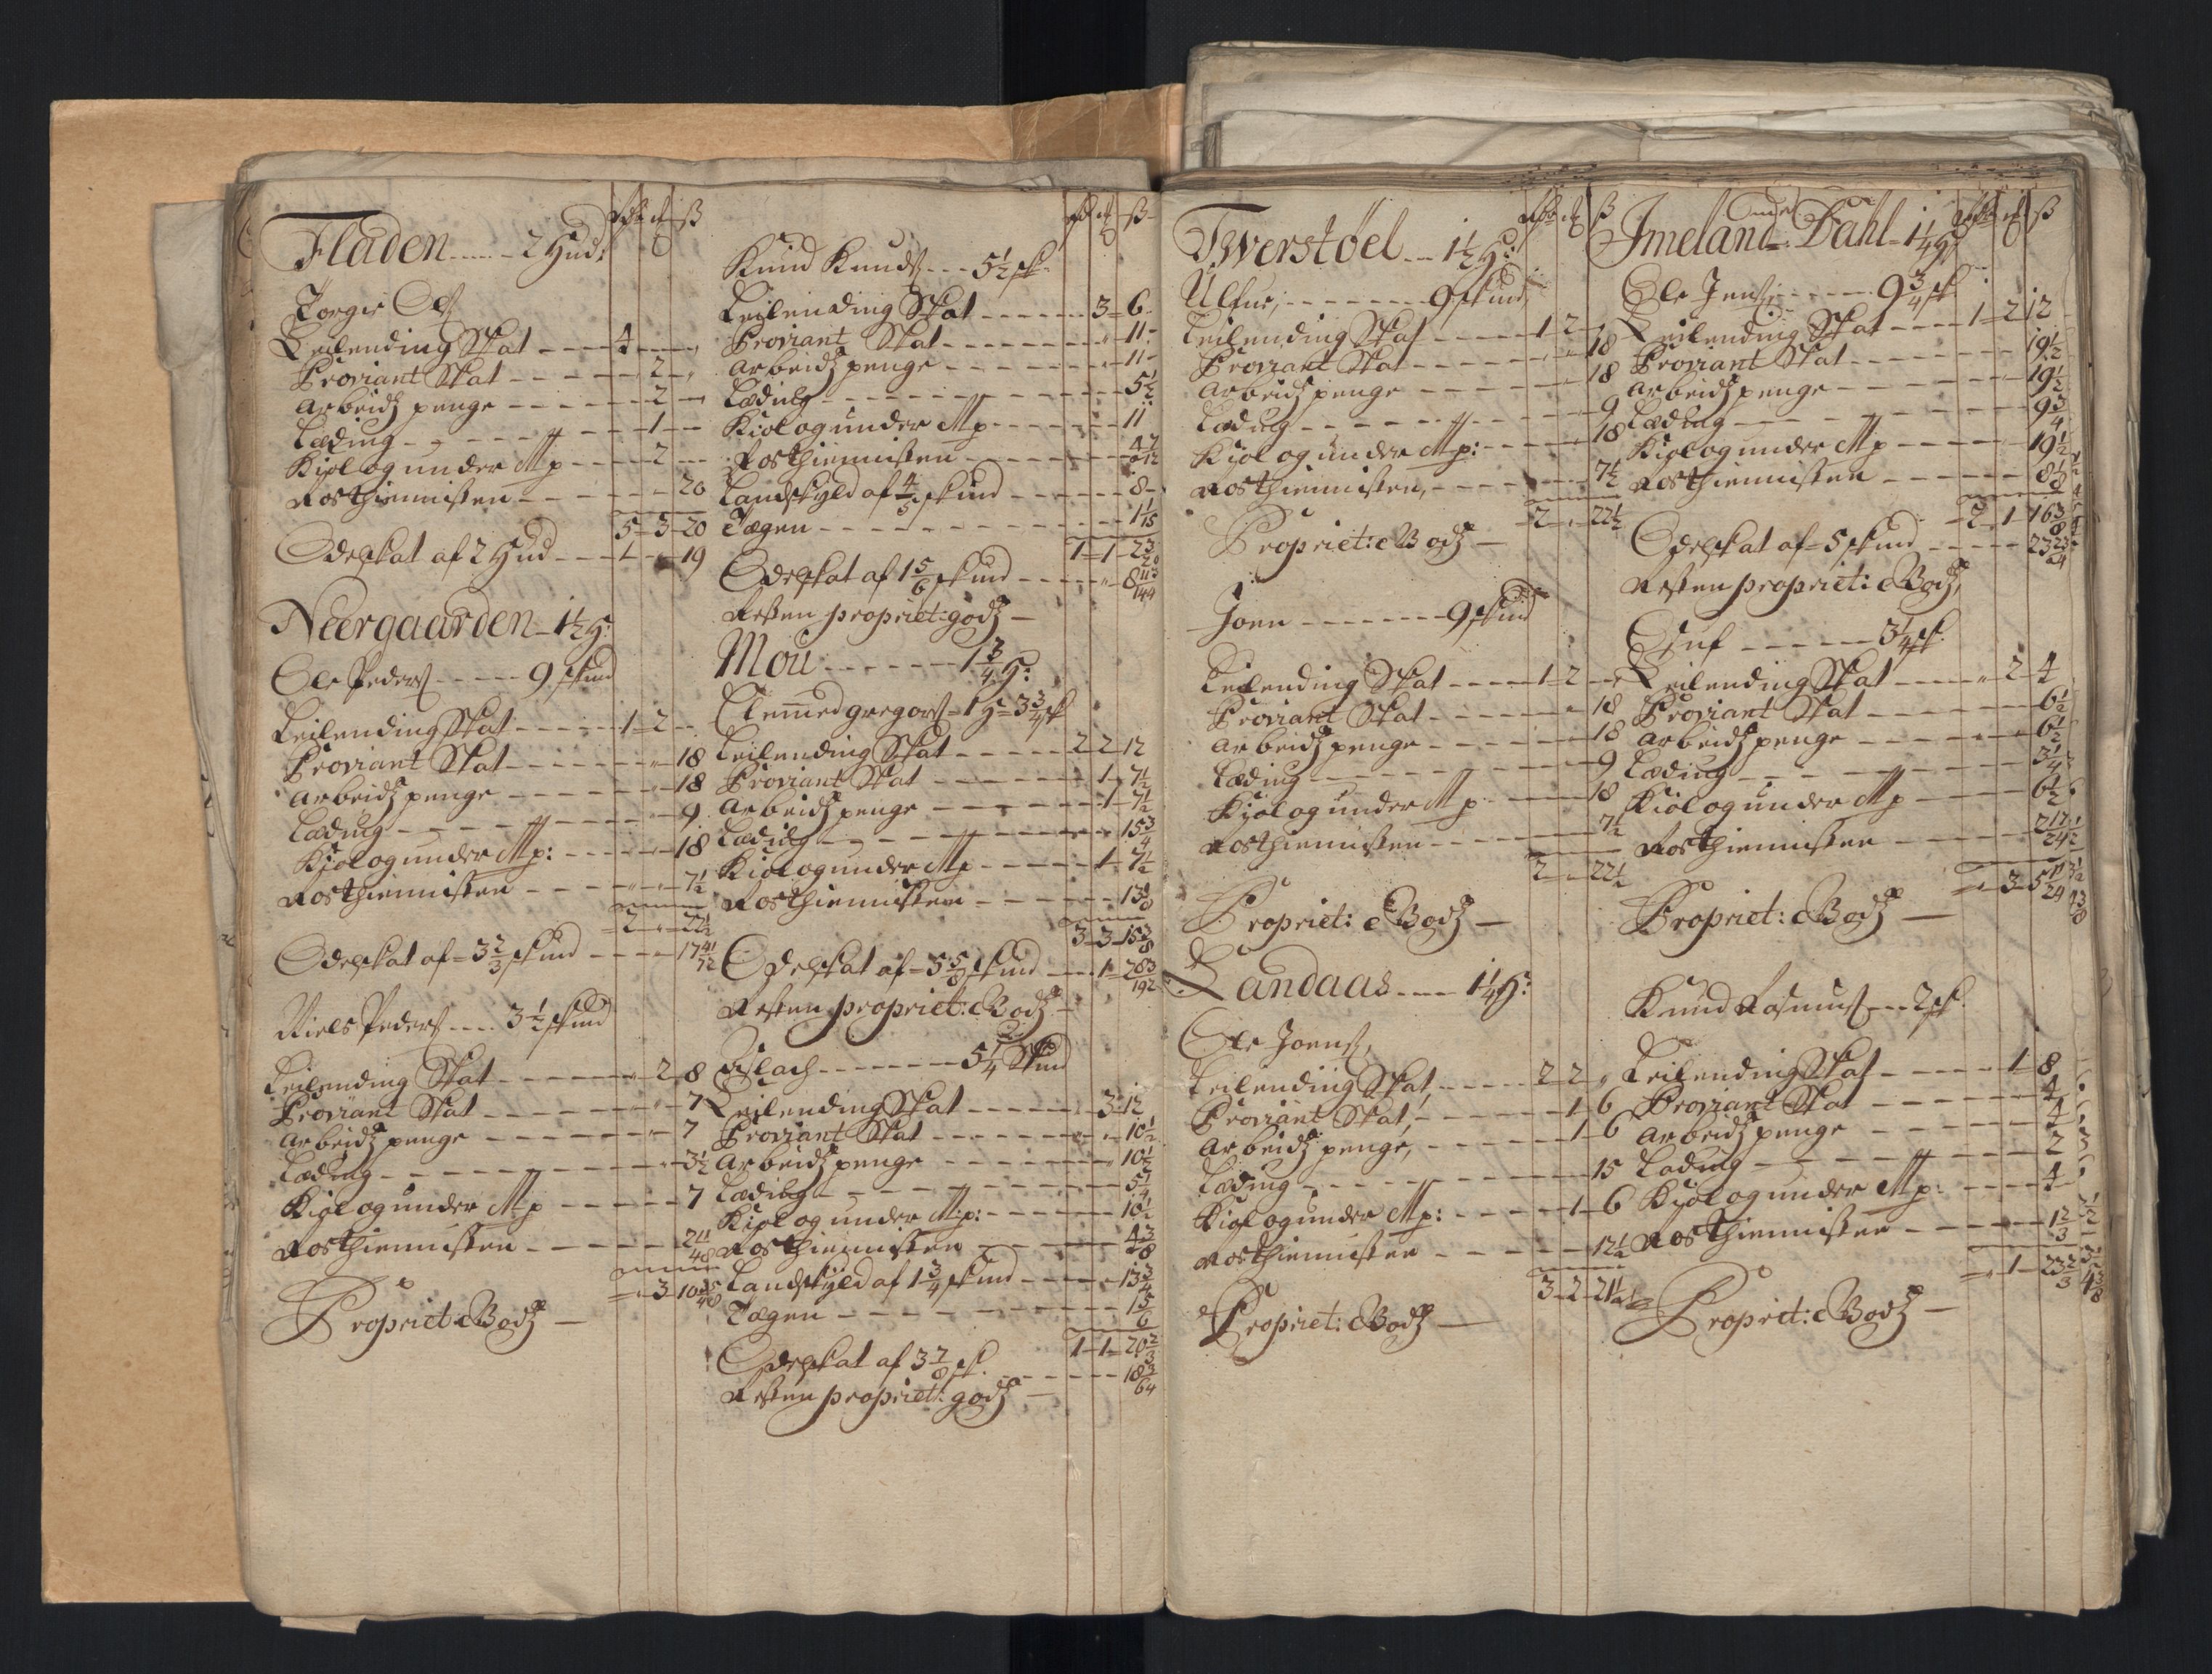 Rdr ort ß
Fladen ...... 2 Hud:
Torgie Ols:
Leilending Skat ---- 4 - „ - „
Proviant Skat ------ 2 - „
Arbeidz penge ------ 2 -
Læding ------ 1 -
Kiøl og under Mp ---- 2 -
Rostiennisten ------ 20
5 - 3 - 20
Odelskat af 2 Hud --- 1 - „ - 19
Neergaarden - 1½ H:
Ole Peders: ----- 9 skind
Leilending Skat ----- 1 - 2 -
Proviant Skat ------ 18
Arbeidz penge ------ 18
Læding ------ 9
Kiøl og under Mp: ----- 18
Rostiennisten ----- 7½
2 - „ - 22½
Odelskat af - 3⅔ skind ---- 17 41/72
Niels Peders: .... 3½ skind
Leilending Skat ------ 2 - 8
Proviant Skat ------ 7
Arbeidz penge ------ 7
Læding ------ 3½
Kiøl og under Mp ----- 7
Rostiennisten ------ 2 11/48
3 - 10
Propriet: Godz —
Rd ort ß
Knud Knuds: --- 5½ sk:
Leilending Skat ------ 3 - 6
Proviant Skat ------ 11
Arbeidz penge ------ 11
Læding ------ 5½
Kiøl og under Mp ----- 11
Rostiennisten ------ 4 7/12
Landskyld af 4/5 skind ------ 8
Tægen ------ 1 1/15
1 - 1 - 2 3/20
Odelskat af 1 5/6 skind ----- 8 113/144
Resten propriet: godz —
Moü ...... 1¾ H:
Clemmed gregors: - 1 H - 3¾ sk
Leilending Skat ----- 2 - 2 - 12
Proviant Skat ------ 1 - 7½
Arbeidz penge ------ 1 - 7½
Læding ------ 15¾
Kiøl og under Mp ---- 1 - 7½
Rostiennisten ------ 13⅛
3 - 3 - 15⅜
Odelskat af - 5⅝ skind --- 1 - 2 83/192
Resten propriet: Godz —
Aslach ------ 5¼ Skind
Leilending Skat ------ 3 - 12
Proviant Skat ------ 10½
Arbeidz penge ------ 10½
Læding ------ 5¼
Kiøl og under Mp: ------ 10½
Rostiennisten ------ 4⅜
Landskyld af 1¾ skind ---- 13¾
Tægen ------ 1 5/6
1 - 1 - 20⅔
Odelskat af 3⅞ sk: ------ 18 3/64
Resten propriet: godz —
Rdr ort ß
Twerstøel --- 1½ H:
Ulfue, ------ 9 skind
Leilending Skat ----- 1 - 2 - „
Proviant Skat ------ 18
Arbeidz penge ------ 18
Læding ------ 9
Kiøl og under Mp: ----- 18
Rostiennisten, ------ 7½
2 - „ - 22½
Propriet: Godz —
Joen ------ 9 skind
Leilending Skat ---- 1 - 2 - „
Proviant Skat ------ 18
Arbeidz penge ------ 18
Læding ------ 9
Kiøl og under Mp ----- 18
Rostiennisten ----- 7½
2 - „ - 22½
Propriet: Godz —
Landaas ---- 1¼ H:
Ole Joens:
Leilending Skat, ----- 2 - 2 - „
Proviant Skat, ------ 1 - 6
Arbeidz penge, ------ 1 - 6
Læding ------ 15
Kiøl og under Mp: ----- 1 - 6
Rostiennisten ------ 12½
3 - 2 - 21½
Propriet: Godz —
Rdr ort ß
Imeland med Dahl - 1¼ H
Ole Jens: ------ 9¾ sk
Leilending Skat ---- 1 - 2 12
Proviant Skat ------ 19½
Arbeidz penge ------ 19½
Læding ------ 9¾
Kiøl og under Mp ----- 19½
Rostiennisten ------ 8⅛
2 - 1 - 16⅜
Odelskat af - 5 skind ----- 23 23/24
Resten propriet: Godz
Oluf ------ 3¼ sk
Leilending Skat ----- 2 - 4
Proviant Skat ------ 6½
Arbeidz penge ------ 6½
Læding ------ 3¼
Kiøl og under Mp ----- 6½
Rostiennisten ------ 2 17/24
3 - 5 11/24
Propriet: Godz —
Knud Rasmus: --- 2 sk:
Leilending Skat ----- 1 - 8
Proviant Skat ------ 4
Arbeidz penge ------ 4
Læding ------ 2
Kiøl og under Mp: ----- 4
Rostiennisten ------ 1⅔
1 - 23⅔
Propriet: Godz —